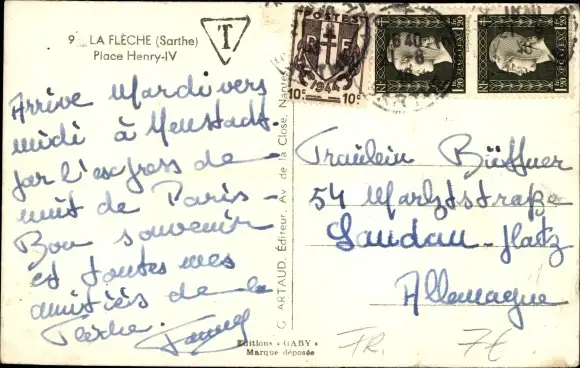 9 LA FLÈCHE (Sarthe)
Place Henry-IV
T
POSTES
RF
1944
10c 10c
1F20 1F20
Arrive Mardi vers
midi à Neustadt.
par l'express de
nuit de Paris -
Bon souvenir
et toutes mes
amitiés de la
Flèche.
G. ARTAUD, Éditeur, Av. de la Close, Nantes
Fräulein Büffner
54 Marktstraße
Landau-Pfalz
Allemagne
Editions « GABY »
Marque déposée
FR. 7€